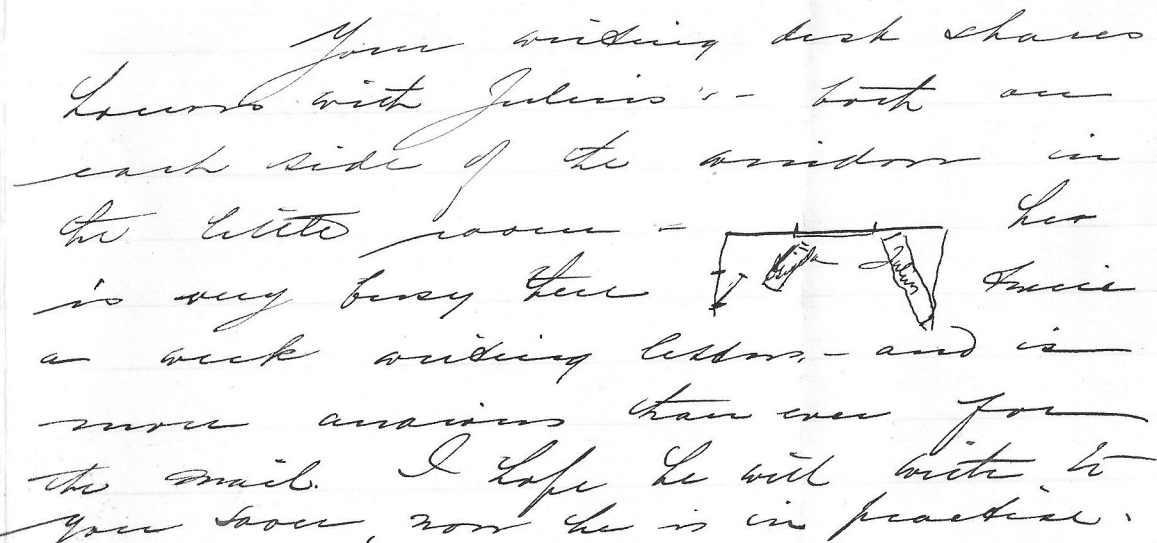 Your writing desk shares
honors with Julius's - both on
each side of the window in
the little room - he
is very busy there Julius twice
a week writing letters, - and is
more anxious than ever for
the mail. I hope he will write to
you soon, now he is in practise.